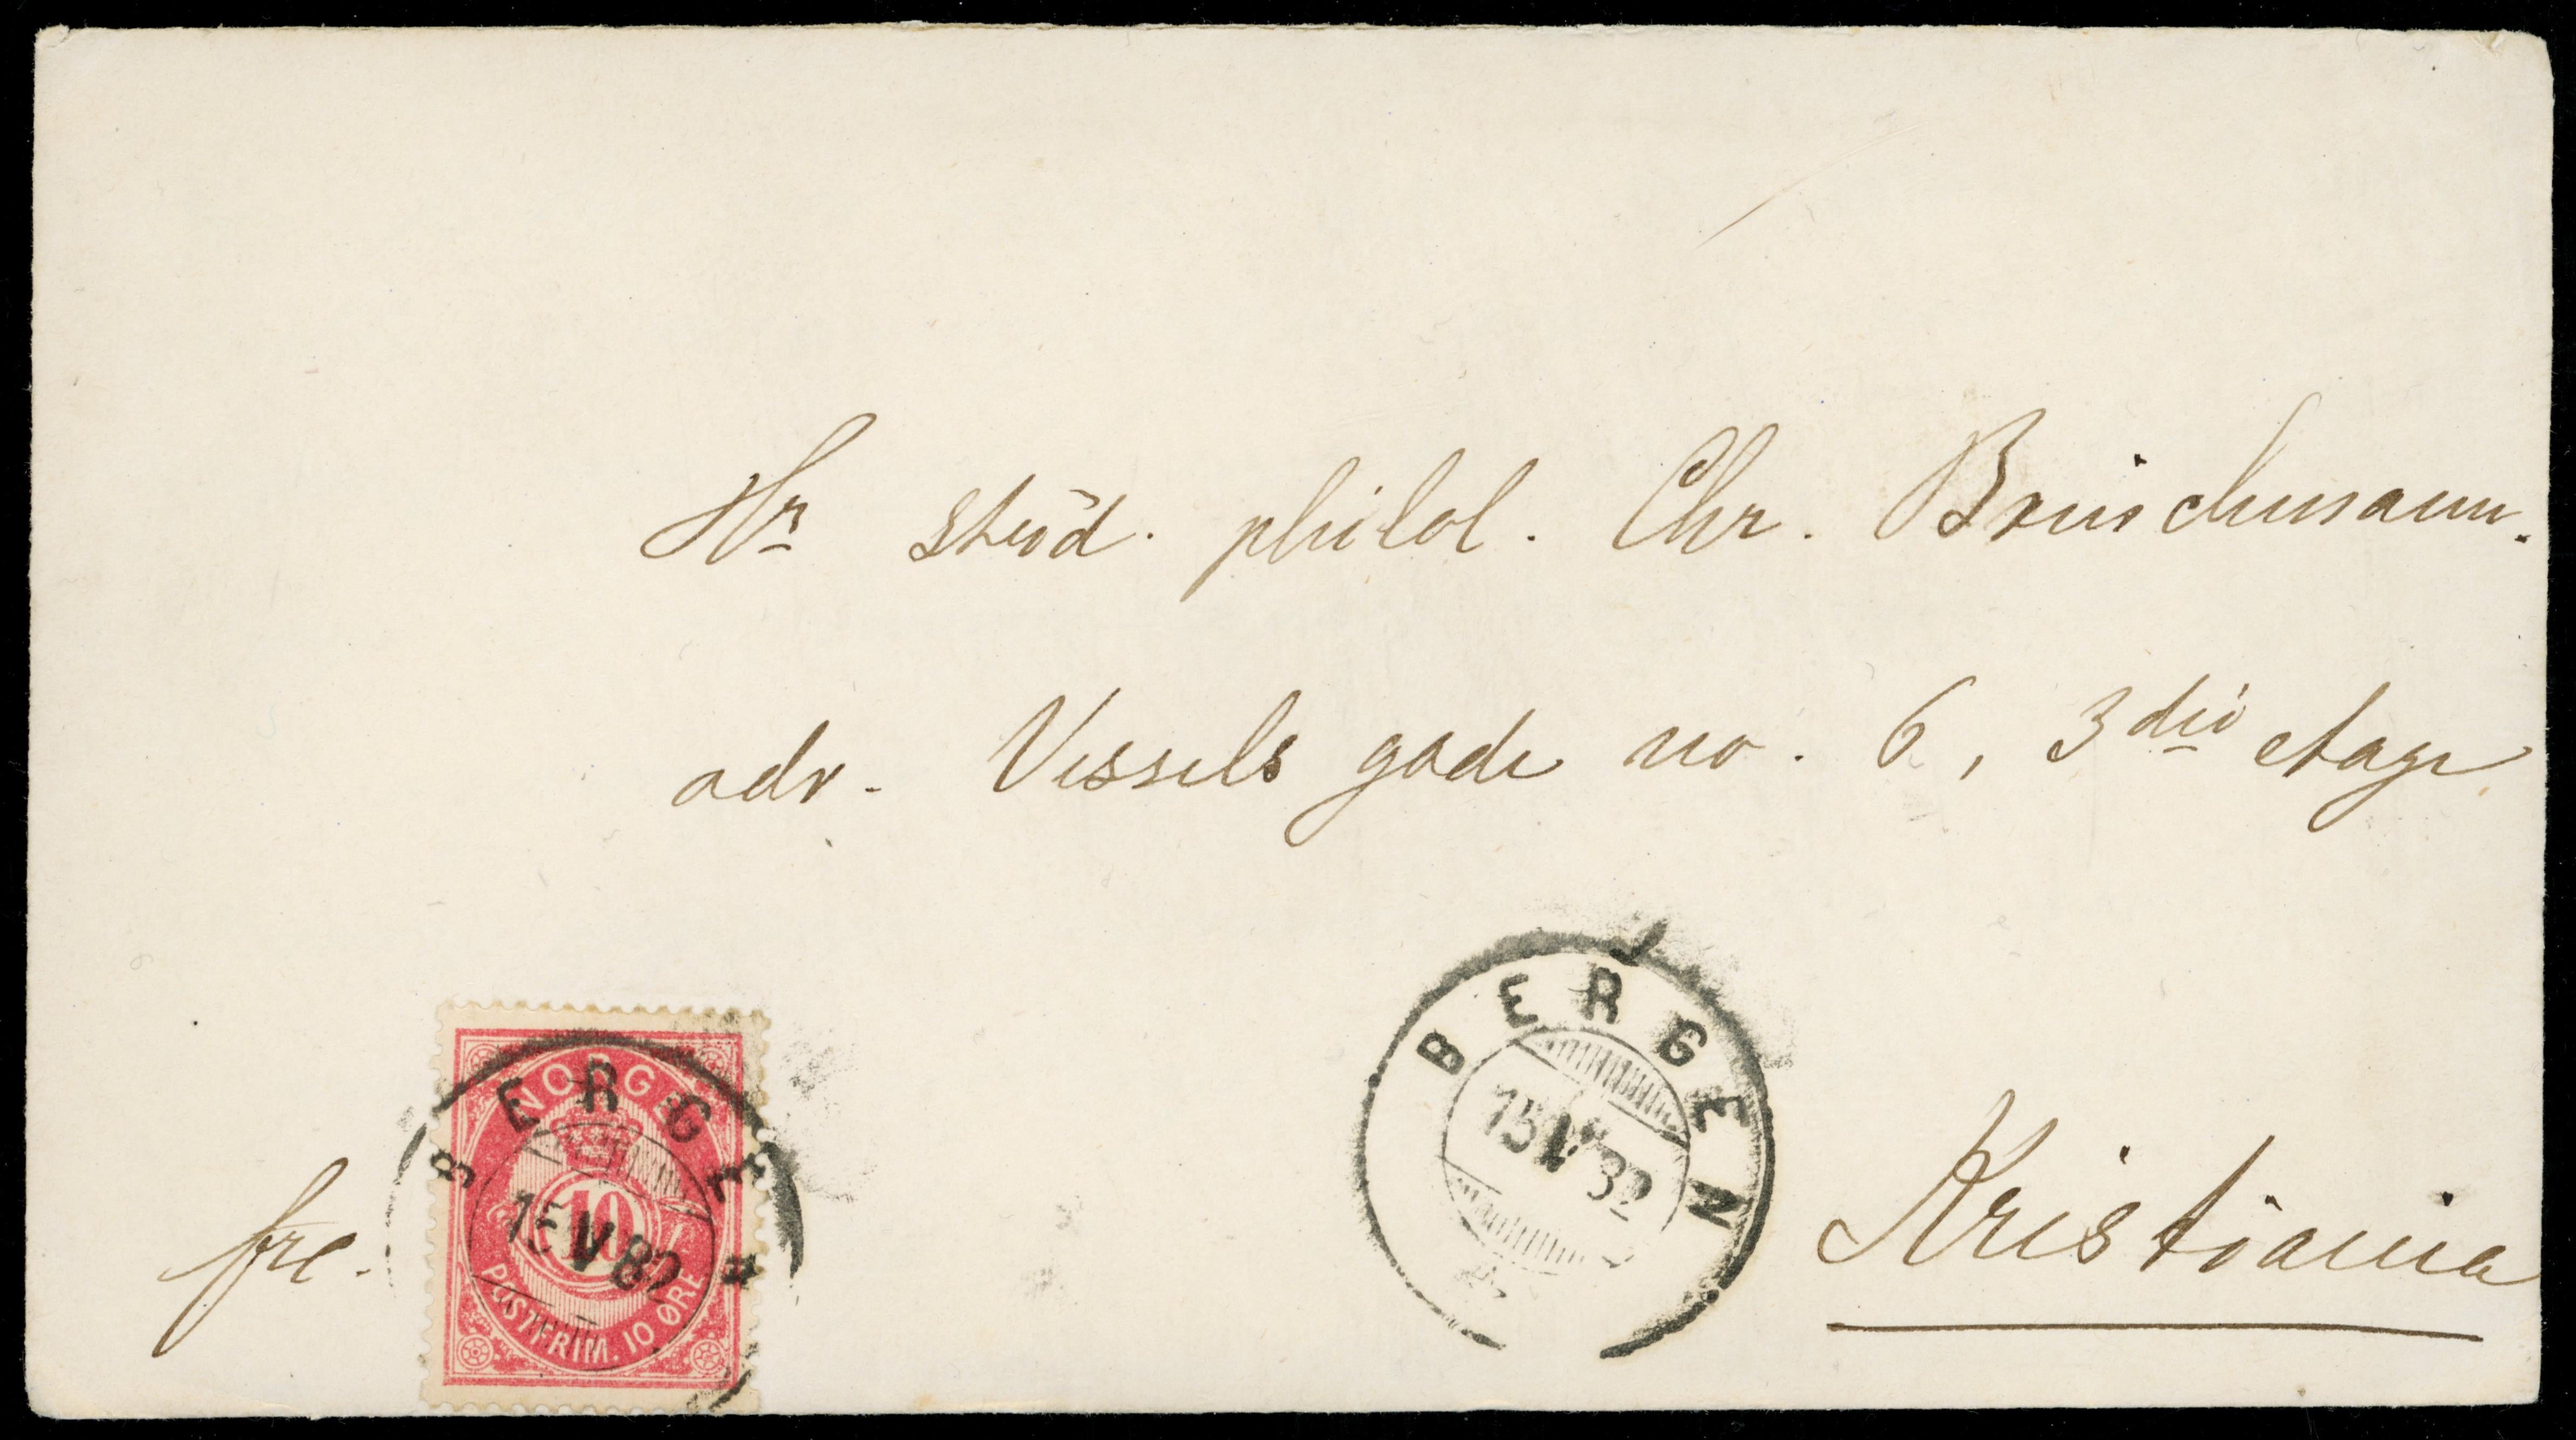 Hr stud. philol. Chr. Brinchmann.
adr. Vessels gade no. 6, 3die etage
BERGEN
15 V 82
Kristiania
frc.
NORGE
10
POSTFRIM. 10 ØRE
BERGEN
15 V 82